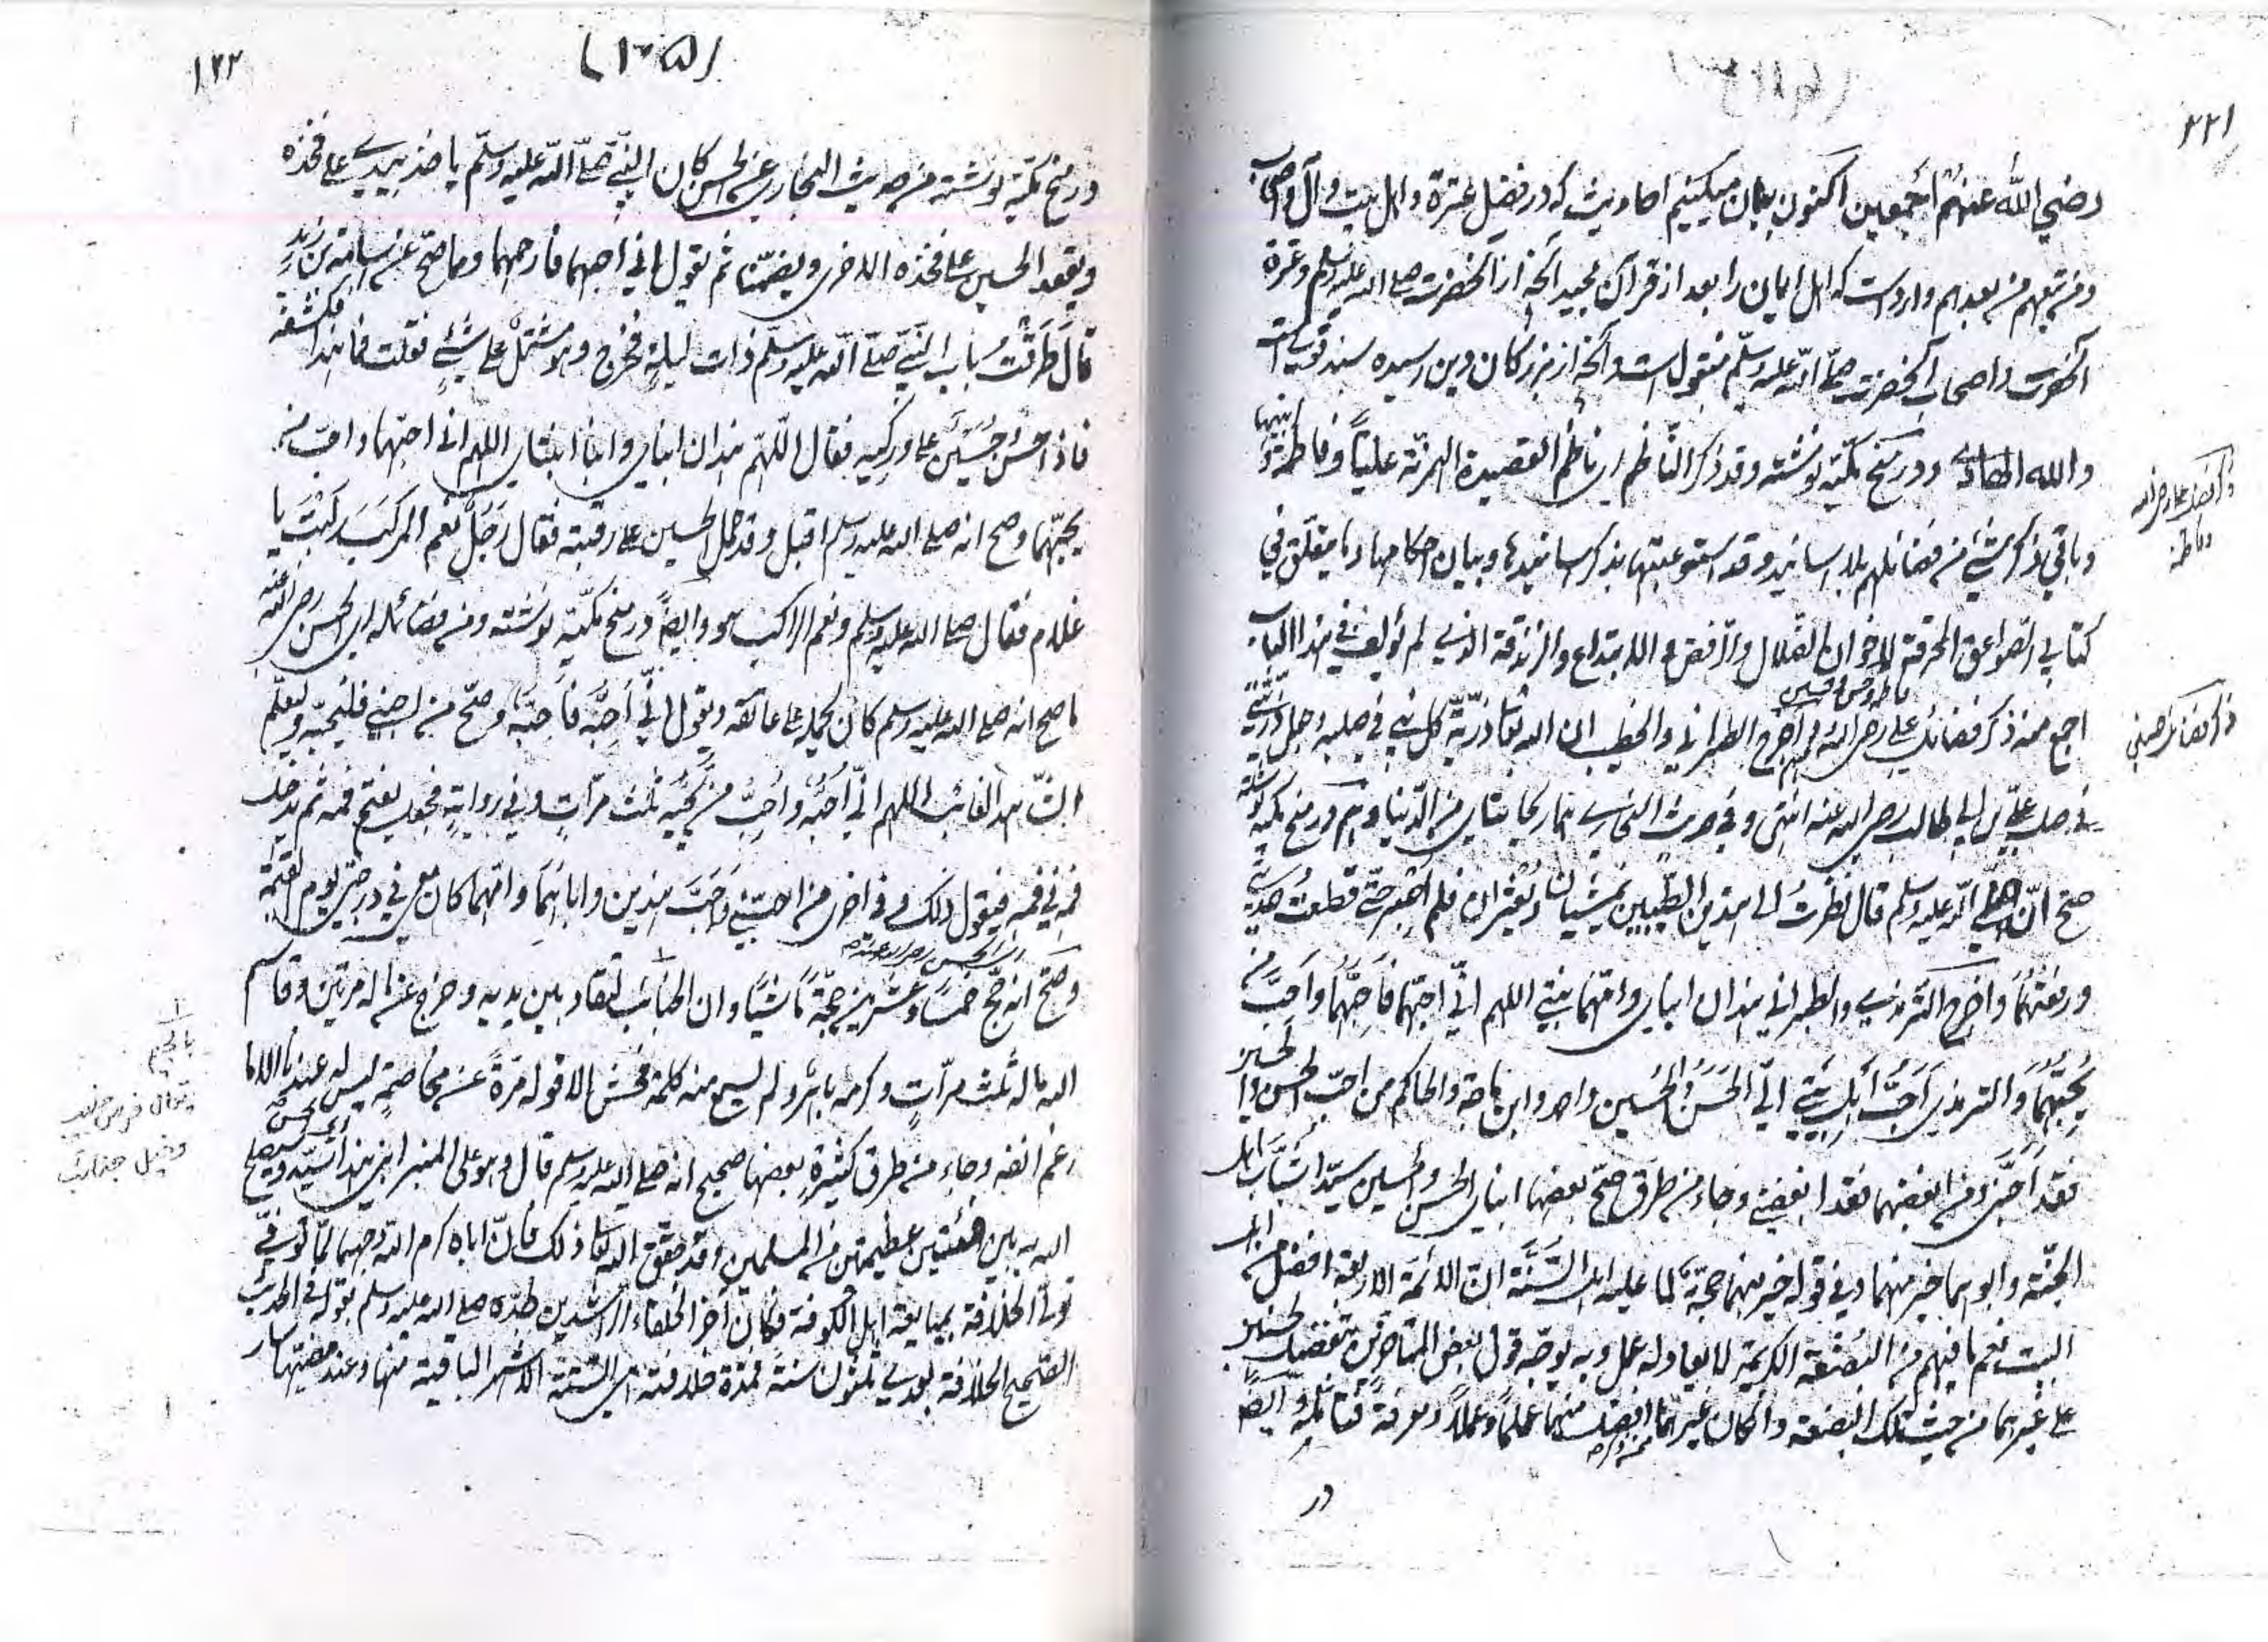 ۲۲۱
رضي الله عنهم أجمعين اكنون بيان ميكنيم احاديث كه در فضل عترة واهل بيت وآل واصحاب
ومن تبعهم من بعدهم وارد است كه اهل ايمان را بعد از قرآن مجيد آنچه از آنحضرت صلے الله عليه وسلم وعترة
آنحضرت واصحاب آنحضرت صلّے الله عليه وسلّم منقول است وآنچه از بزرگان دين رسيده سند قوى است
والله الهادے ودر منح مكيّه نوشته وقد ذكر الناظم اى ناظم القصيدة الهمزيّة عليّاً وفاطمة وابنيهما
وباقي ذكر شئ من فضائلهم بلا اسانيد وقد استوعبتها بذكر اسانيدها وبيان احكامها وما يتعلق في
كتابي الصواعق المحرقة لاخوان الضلال والرفض والابتداع والزندقة الذي لم يؤلف في هذا الباب
اجمع منه ذكر فضائل علي رضي الله
فاطمه وحسن وحسين
اخرج الطبراني والخطيب ان الله تعا ذريّة كل نبي في صلبه وجعل ذريتي
في صلب علي بن ابي طالب رضي الله عنه انتهى وفي حديث البخاري هما ريحانتاي من الدنيا وهم در منح مكيه نوشته
صح انّ النبي صلى الله عليه وسلم قال نظرتُ الى هذين الطيبين يمشيان ويعثران فلم اصبر حتى قطعت حديثي
ورفعتهما واخرج الترمذي والطبراني هذان ابناي وامّهما بنتي اللهم انّي احبّهما فاَحِبّهما واَحبَّ من
يُحِبّهما والترمذي اَحَبُّ اَهل بيتي اليّ الحَسَن والحُسَين واحمد وابن ماجة والحاكم من احبّ الحسن والحسين
فقد اَحبّني ومن ابغضهما فقد ابغضني وجاء من طرق صحّ بعضها ابناي الحسن والحسين سيّدا شَباب اهل
الجنّة وابوهما خير منهما وفي قوله خير منهما حجّة لما عليه اهل السُّنّة انّ الائمّة الاربعة افضل من اهل
البيت نعم ما فيهم من البُضعة الكريمة لا يعادله عمل وبه يوجّه قول بعض المتاخرين بتفضيل الحسنين
على غيرهما من حيث تلك البضعة وان كان غيرهما افضل منهما علماً وعملاً ومعرفةً وايضاً
در
ذكر فضائل علي رضي الله
وفاطمه
ذكر فضائل حسنين
۱۲۲
(۱۰۵)
در منح مكيّه نوشته من حديث البخاري عن الحسن كان النبي صلّے الله عليه وسلّم ياخذ بيدے على فخذه
ويقعد الحسين على فخذه الاخرى ويضمّنا ثم يقول اني احبهما فارحمهما ومما صح عن اسامة بن زيد
قال طَرَقْتُ باب النبي صلّے الله عليه وسلّم ذات ليلةٍ فخرج وهو مشتمل على شئ فقلت ما هذا فكشفه
فاذا حسن وحُسَين على وركيه فقال اللّهمّ هذان ابناي وابنا ابنتاي اللهم اني احبّهما واحبّ من
يحبّهما وصح انه صلى الله عليه وسلم اقبل وقد حمل الحسين على رقبته فقال رَجُلٌ نعم المركَبَ ركبتَ يا
غلام فقال صلى الله عليه وسلم ونعم الراكب هو وايضاً در منح مكيّه نوشته ومن فضائله اى الحسن رضى الله عنه
ما صح انه صلى الله عليه وسلم كان يحمله على عاتقه ويقول انّي اُحبُّه فاَحبّه وصحّ من احبني فليحبّه وليعلّم
الشاهد الغائب اللهم انّي اُحبّه واُحِبُّ من يحبّه ثلث مرّاتٍ وفي روايةٍ فجعل يفتح فمه ثم يدخل
فمه في فمه فيقول ذلك وفي اخرى من احبّني واَحبّ هذين واباهما وامّهما كان معي في درجتي يوم القيمة
اى الحسن رضى الله عنه
وصَحّ انه حجّ خمساً وعشرين حجّةً ماشياً وان النجائب لتقاد بين يديه وخرج عن ماله مرتين وقاسم
الله ماله ثلث مرّاتٍ ولم يسمع منه كلمة فحش الا قوله مرةً عن مخاصمةٍ ليس له عندنا الا ما
رغم انفه وجاء من طرق كثيرةٍ بعضها صحيح انه صلى الله عليه وسلم قال وهو على المنبر ابني هذا سيّد وسيصلح
اى الحسن
الله به بين فئتين عظيمتين من المسلمين وقد حقّق الله تعا ذلك فانّ اباه كرم الله وجهه لما توفي
تولّى الخلافة بمبايعة اهل الكوفة فكان آخر الخلفاء الراشدين جدّه صلى الله عليه وسلم بقوله في الحديث
الصحيح الخلافة بعدي ثلثون سنة فمدّة خلافته هى الستة الاشهر الباقية منها وعند مضيّها سار